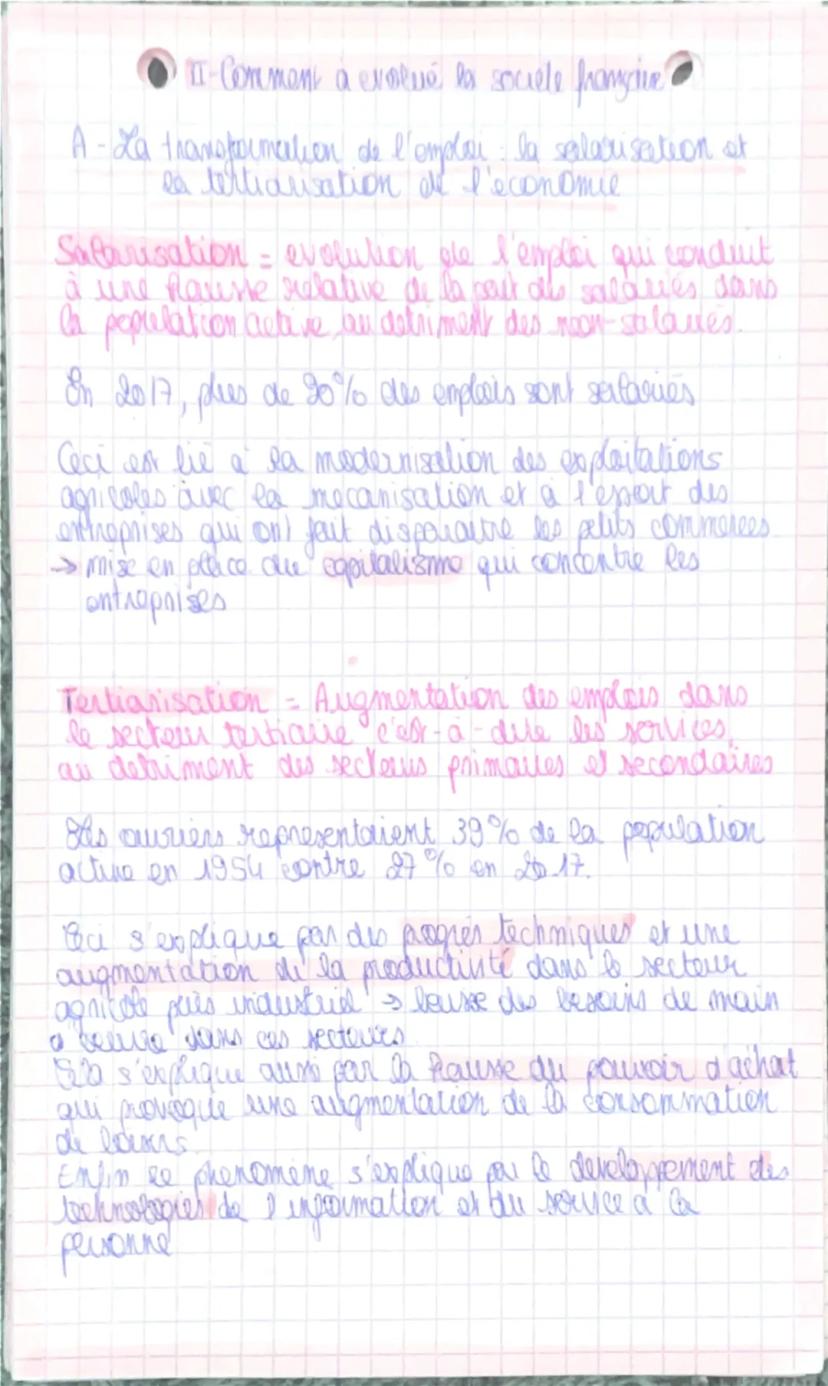 II-Comment à evolué la société française
A - La transformation de l'emploi : la salarisation et
la tertiarisation de l'économie
Salarisation = evolution de l'emploi qui conduit
à une hausse relative de la part des salariés dans
la population active, au detriment des non-salariés.
En 2017, plus de 90% des emplois sont salariés
Ceci est lié à la modernisation des exploitations
agricoles avec la mécanisation et à l'essort des
entreprises qui ont fait disparaitre les petits commerces
→ mise en place du capitalisme qui concentre les
entreprises
Tertiarisation = Augmentation des emplois dans
le secteur tertiaire c'est-à-dire les services,
au detriment des secteurs primaires et secondaires
Les ouvriers representaient 39% de la population
active en 1954 contre 27% en 2017.
Ceci s'explique par des progrès techniques et une
augmentation de la productivité dans le secteur
agricole puis industriel → baisse des besoins de main
d'oeuvre dans ces secteurs
Cela s'explique aussi par la hausse du pouvoir d'achat
qui provoque une augmentation de la consommation
de loisirs.
Enfin ce phenomène s'explique par le developpement des
technologies de l'information et du service à la
personne